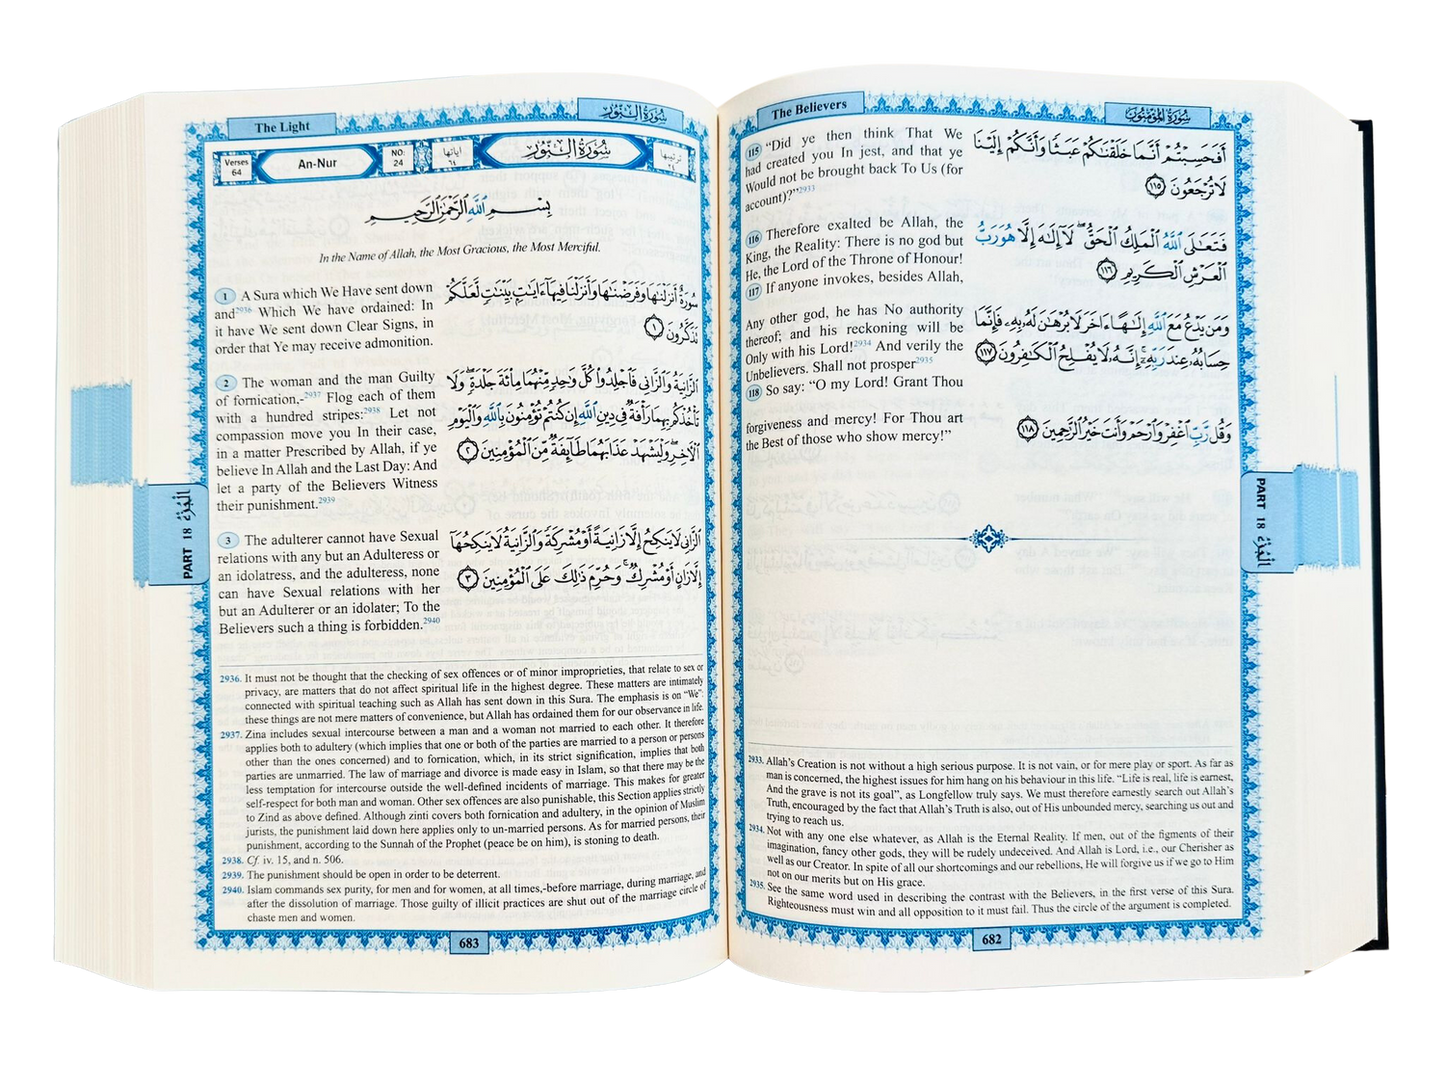 The Believers
سُورَةُ المُؤْمِنُونَ
115 “Did ye then think That We
had created you In jest, and that ye
Would not be brought back To Us (for
account)?”2933
أَفَحَسِبْتُمْ أَنَّمَا خَلَقْنَٰكُمْ عَبَثًا وَأَنَّكُمْ إِلَيْنَا
لَا تُرْجَعُونَ ١١٥
116 Therefore exalted be Allah, the
King, the Reality: There is no god but
He, the Lord of the Throne of Honour!
فَتَعَٰلَى ٱللَّهُ ٱلْمَلِكُ ٱلْحَقُّ ۖ لَآ إِلَٰهَ إِلَّا هُوَ رَبُّ
ٱلْعَرْشِ ٱلْكَرِيمِ ١١٦
117 If anyone invokes, besides Allah,
Any other god, he has No authority
thereof; and his reckoning will be
Only with his Lord!2934 And verily the
Unbelievers. Shall not prosper2935
وَمَن يَدْعُ مَعَ ٱللَّهِ إِلَٰهًا ءَاخَرَ لَا بُرْهَٰنَ لَهُۥ بِهِۦ فَإِنَّمَا
حِسَابُهُۥ عِندَ رَبِّهِۦٓ ۚ إِنَّهُۥ لَا يُفْلِحُ ٱلْكَٰفِرُونَ ١١٧
118 So say: “O my Lord! Grant Thou
forgiveness and mercy! For Thou art
the Best of those who show mercy!”
وَقُل رَّبِّ ٱغْفِرْ وَٱرْحَمْ وَأَنتَ خَيْرُ ٱلرَّٰحِمِينَ ١١٨
PART 18 الْجُزْءُ
2933. Allah’s Creation is not without a high serious purpose. It is not vain, or for mere play or sport. As far as
man is concerned, the highest issues for him hang on his behaviour in this life. “Life is real, life is earnest,
And the grave is not its goal”, as Longfellow truly says. We must therefore earnestly search out Allah’s
Truth, encouraged by the fact that Allah’s Truth is also, out of His unbounded mercy, searching us out and
trying to reach us.
2934. Not with any one else whatever, as Allah is the Eternal Reality. If men, out of the figments of their
imagination, fancy other gods, they will be rudely undeceived. And Allah is Lord, i.e., our Cherisher as
well as our Creator. In spite of all our shortcomings and our rebellions, He will forgive us if we go to Him
not on our merits but on His grace.
2935. See the same word used in describing the contrast with the Believers, in the first verse of this Sura.
Righteousness must win and all opposition to it must fail. Thus the circle of the argument is completed.
682
The Light
سُورَةُ النُّورِ
Verses
64
An-Nur
NO:
24
آياتها
٦٤
سُورَةُ النُّورِ
ترتيبها
بِسْمِ ٱللَّهِ ٱلرَّحْمَٰنِ ٱلرَّحِيمِ
In the Name of Allah, the Most Gracious, the Most Merciful.
1 A Sura which We Have sent down
and2936 Which We have ordained: In
it have We sent down Clear Signs, in
order that Ye may receive admonition.
سُورَةٌ أَنزَلْنَٰهَا وَفَرَضْنَٰهَا وَأَنزَلْنَا فِيهَآ ءَايَٰتٍۭ بَيِّنَٰتٍ لَّعَلَّكُمْ
تَذَكَّرُونَ ١
2 The woman and the man Guilty
of fornication,-2937 Flog each of them
with a hundred stripes:2938 Let not
compassion move you In their case,
in a matter Prescribed by Allah, if ye
believe In Allah and the Last Day: And
let a party of the Believers Witness
their punishment.2939
ٱلزَّانِيَةُ وَٱلزَّانِى فَٱجْلِدُوا۟ كُلَّ وَٰحِدٍ مِّنْهُمَا مِا۟ئَةَ جَلْدَةٍ ۖ وَلَا
تَأْخُذْكُم بِهِمَا رَأْفَةٌ فِى دِينِ ٱللَّهِ إِن كُنتُمْ تُؤْمِنُونَ بِٱللَّهِ وَٱلْيَوْمِ
ٱلْءَاخِرِ ۖ وَلْيَشْهَدْ عَذَابَهُمَا طَآئِفَةٌ مِّنَ ٱلْمُؤْمِنِينَ ٢
3 The adulterer cannot have Sexual
relations with any but an Adulteress or
an idolatress, and the adulteress, none
can have Sexual relations with her
but an Adulterer or an idolater; To the
Believers such a thing is forbidden.2940
ٱلزَّانِى لَا يَنكِحُ إِلَّا زَانِيَةً أَوْ مُشْرِكَةً وَٱلزَّانِيَةُ لَا يَنكِحُهَآ
إِلَّا زَانٍ أَوْ مُشْرِكٌ ۚ وَحُرِّمَ ذَٰلِكَ عَلَى ٱلْمُؤْمِنِينَ ٣
PART 18 الْجُزْءُ
2936. It must not be thought that the checking of sex offences or of minor improprieties, that relate to sex or
privacy, are matters that do not affect spiritual life in the highest degree. These matters are intimately
connected with spiritual teaching such as Allah has sent down in this Sura. The emphasis is on “We”:
these things are not mere matters of convenience, but Allah has ordained them for our observance in life.
2937. Zina includes sexual intercourse between a man and a woman not married to each other. It therefore
applies both to adultery (which implies that one or both of the parties are married to a person or persons
other than the ones concerned) and to fornication, which, in its strict signification, implies that both
parties are unmarried. The law of marriage and divorce is made easy in Islam, so that there may be the
less temptation for intercourse outside the well-defined incidents of marriage. This makes for greater
self-respect for both man and woman. Other sex offences are also punishable, this Section applies strictly
to Zind as above defined. Although zinti covers both fornication and adultery, in the opinion of Muslim
jurists, the punishment laid down here applies only to un-married persons. As for married persons, their
punishment, according to the Sunnah of the Prophet (peace be on him), is stoning to death.
2938. Cf. iv. 15, and n. 506.
2939. The punishment should be open in order to be deterrent.
2940. Islam commands sex purity, for men and for women, at all times,-before marriage, during marriage, and
after the dissolution of marriage. Those guilty of illicit practices are shut out of the marriage circle of
chaste men and women.
683